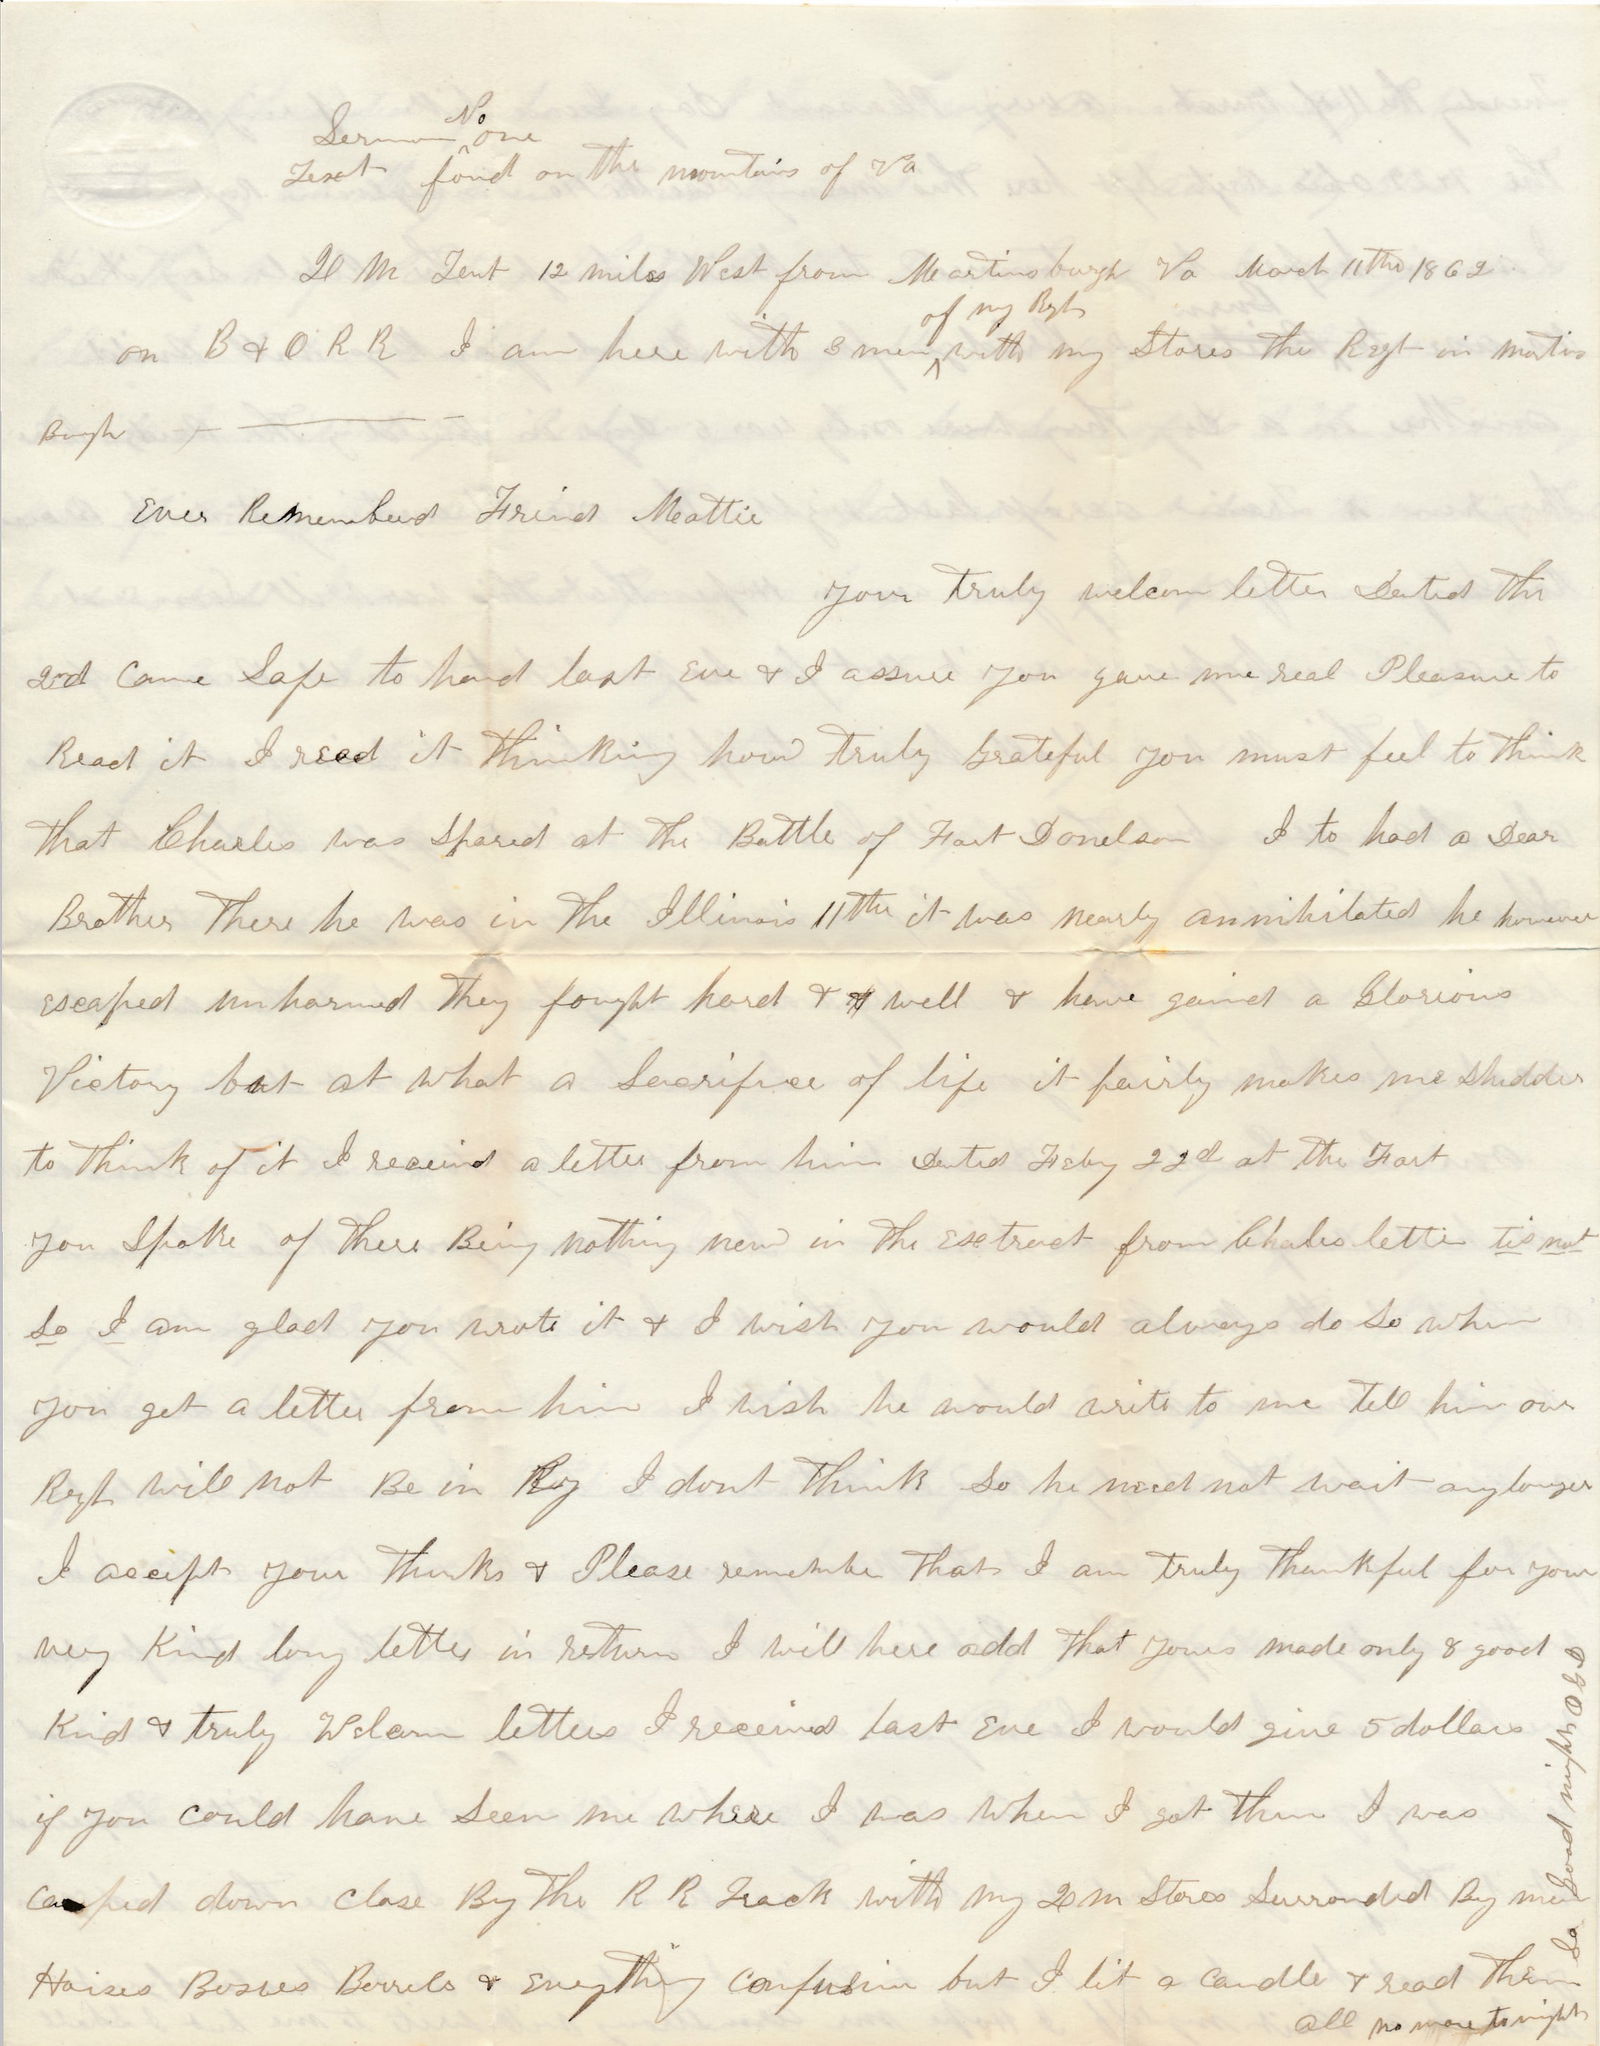 Sermon No one
Text found on the mountains of Va
Q M Tent 12 miles West from Martinsburgh Va March 11th 1862
on B & O R R I am here with 3 men of my Regt with my Stores the Regt in Martins
Burgh
Ever Rememberd Friend Mattie
Your truly welcom letter Dated the
2nd Came Safe to hand last Eve & I assure you gave me real Pleasure to
Read it I read it thinking how truly Grateful you must feel to think
that Charles was Spared at the Battle of Fort Donelson I to had a Dear
Brother There he was in the Illinois 11th it was nearly annihilated he however
escaped unharmed they fought hard & well & have gained a Glorious
Victory but at what a Sacrifice of life it fairly makes me Shudder
to think of it I received a letter from him Dated Feby 22d at the Fort
you Spoke of there Being nothing new in the Extract from Charles letter tis not
So I am glad you wrote it & I wish you would always do So when
you get a letter from him I wish he would write to me tell him our
Regt will not Be in I dont think So he need not wait any longer
I accept your thanks & Please remember that I am truly thankful for your
very Kind long letter in return I will here add that yours made only 8 good
Kind & truly Welcom letters I received last Eve I would give 5 dollars
if you could have Seen me where I was when I got them I was
camped down close By the R R Track with my Q M Stores Surronded By men
Horses Boxes Berrels & Everything confusion but I lit a candle & read them
all no more to night
So Good night